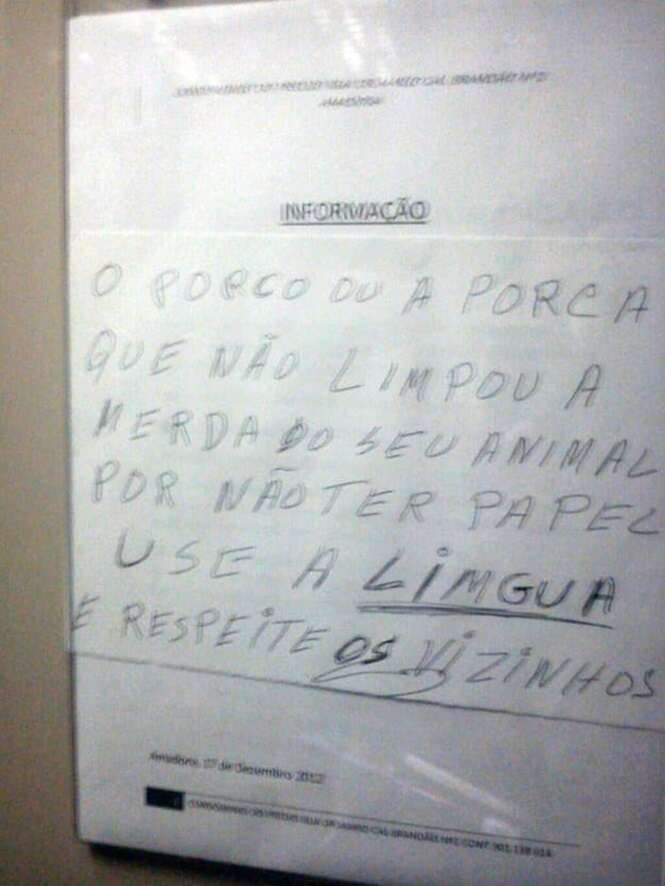 INFORMAÇÃO
O PORCO OU A PORCA
QUE NÃO LIMPOU A
MERDA DO SEU ANIMAL
POR NÃO TER PAPEL
USE A LIMGUA
E RESPEITE OS VIZINHOS
Amadora, 07 de Dezembro 2012